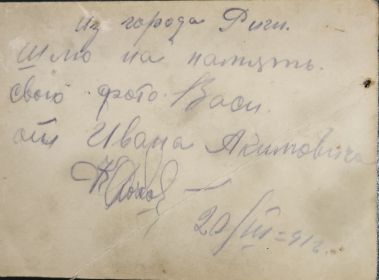 Из города Риги.
Шлю на память
свою фото. Васи.
от Ивана Акимовича
20/III=41г.